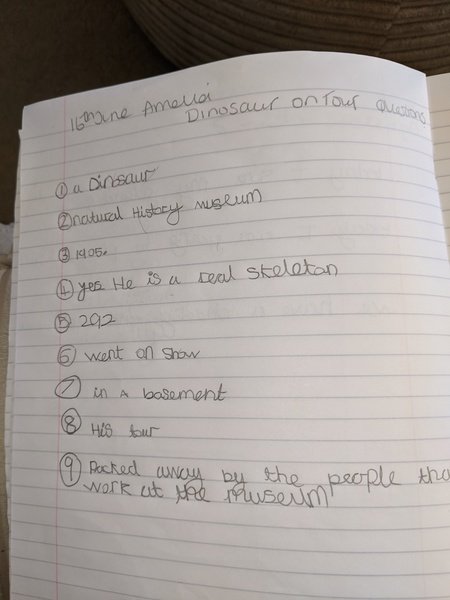 16th June Amelia
Dinosaur on Tour questions
① a Dinosaur
② natural History museum
③ 1905.
④ yes He is a real skeleton
⑤ 292
⑥ went on show
⑦ in a basement
⑧ His tour
⑨ Packed away by the people tha
work at the museum